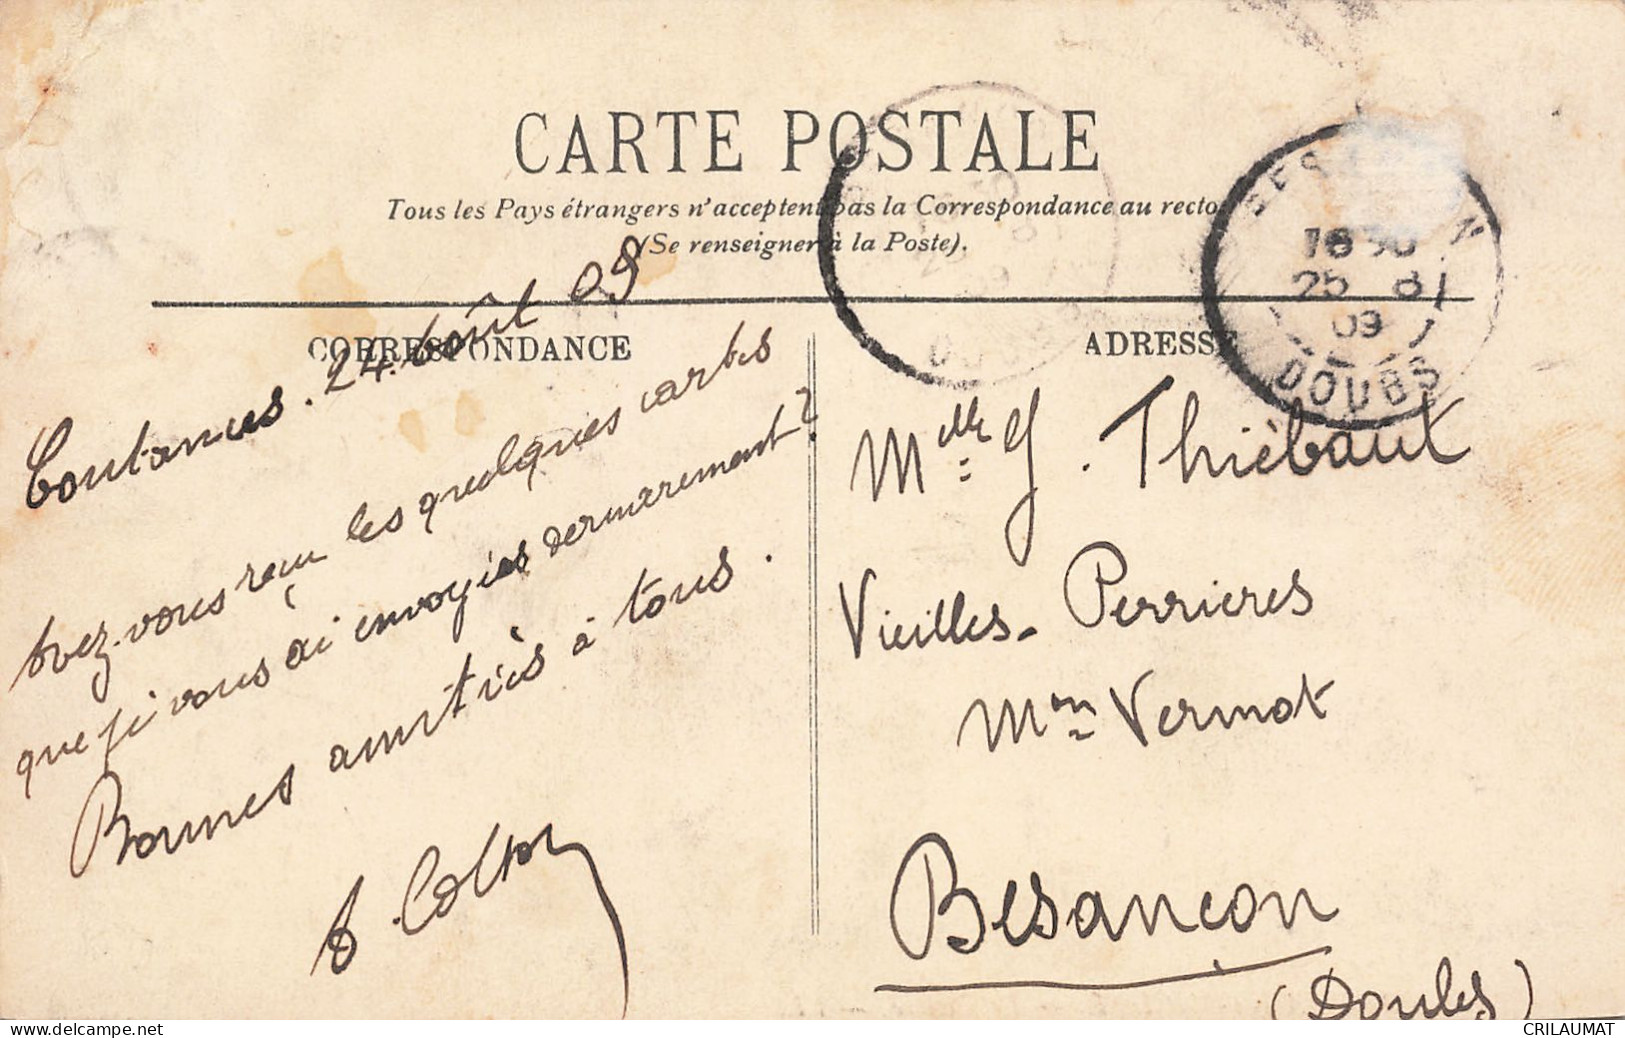 CARTE POSTALE
Tous les Pays étrangers n'acceptent pas la Correspondance au recto
(Se renseigner à la Poste).
CORRESPONDANCE
ADRESSE
Coutances. 24. Août 09
Avez-vous reçu les quelques cartes
que je vous ai envoyées dernièrement?
Bonnes amitiés à tous.
A.
Mlle J. Thiébaut
Vieilles-Perrières
Mon Vermot
Besançon
(Doubs)
25 8
09
DOUBS
CRILAUMAT